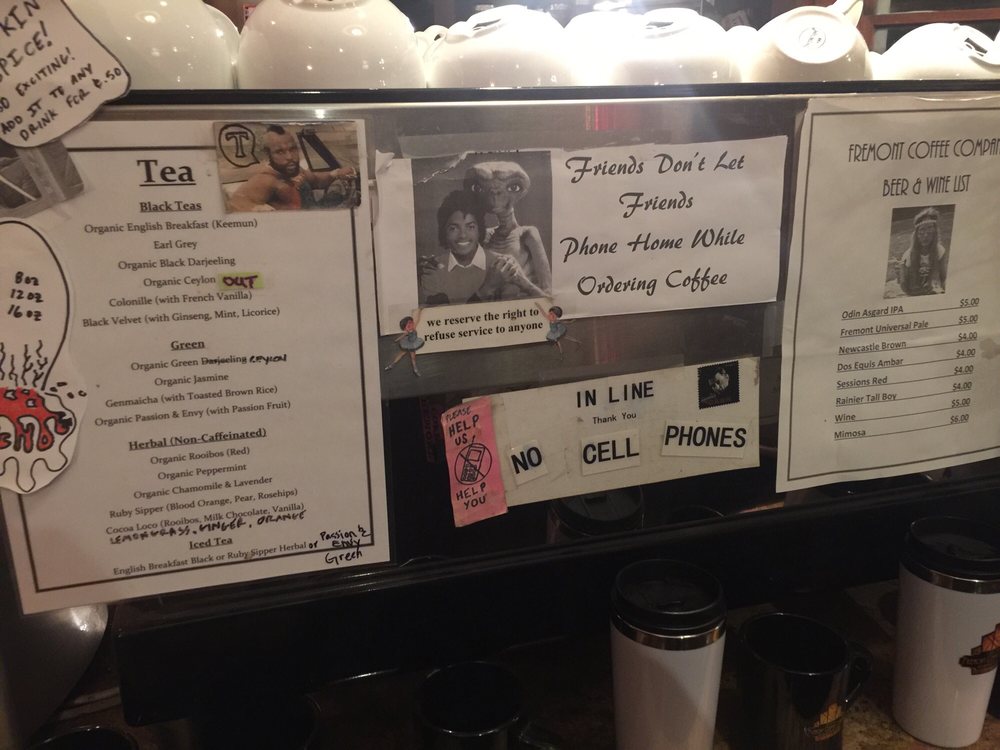 KIN
PICE!
SO EXCITING!
ADD IT TO ANY
DRINK FOR ¢.50
8oz
12oz
16oz
T
Tea
Black Teas
Organic English Breakfast (Keemun)
Earl Grey
Organic Black Darjeeling
Organic Ceylon OUT
Colonille (with French Vanilla)
Black Velvet (with Ginseng, Mint, Licorice)
Green
Organic Green Darjeeling CEYLON
Organic Jasmine
Genmaicha (with Toasted Brown Rice)
Organic Passion & Envy (with Passion Fruit)
Herbal (Non-Caffeinated)
Organic Rooibos (Red)
Organic Peppermint
Organic Chamomile & Lavender
Ruby Sipper (Blood Orange, Pear, Rosehips)
Cocoa Loco (Rooibos, Milk Chocolate, Vanilla)
LEMONGRASS, GINGER, ORANGE
Iced Tea
English Breakfast Black or Ruby Sipper Herbal or Passion &
Envy
Green
Friends Don't Let
Friends
Phone Home While
Ordering Coffee
we reserve the right to
refuse service to anyone
PLEASE
HELP
US!
HELP
YOU
IN LINE
Thank You
NO CELL PHONES
FREMONT COFFEE COMPAN
BEER & WINE LIST
Odin Asgard IPA $5.00
Fremont Universal Pale $5.00
Newcastle Brown $4.00
Dos Equis Ambar $4.00
Sessions Red $4.00
Rainier Tall Boy $4.00
Wine $5.00
Mimosa $6.00